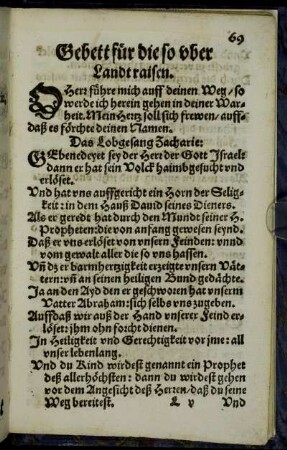 69
Gebett für die so vber
Landt raisen.
O Herr führe mich auff deinen Weg/ so
werde ich herein gehen in deiner War-
heit. Mein Hertz soll sich frewen/ auff-
daß es förchte deinen Namen.
Das Lobgesang Zacharie:
GEbenedeyet sey der Herr der Gott Israel:
dann er hat sein Volck haimbgesucht vnd
erlöset.
Vnd hat vns auffgericht ein Horn der Selig-
keit: in dem Hauß Dauid seines Dieners.
Als er geredt hat durch den Mundt seiner H.
Propheten: die von anfang gewesen seynd.
Daß er vns erlöset von vnsern Feinden: vnnd
vom gewalt aller die so vns hassen.
Vñ dz er barmhertzigkeit erzeigte vnsern Vät-
tern: vñ an seinen heiligen Bund gedächte.
Ja an den Ayd den er geschworen hat vnserm
Vatter Abraham: sich selbs vns zugeben.
Auffdaß wir auß der Hand vnserer Feind er-
löset: jhm ohn forcht dienen.
In Heiligkeit vnd Gerechtigkeit vor jme: all
vnser lebenlang.
Vnd du Kind wirdest genannt ein Prophet
deß allerhöchsten: dann du wirdest gehen
vor dem Angesicht deß Herren/ daß du seine
Weg bereitest. L v Vnd